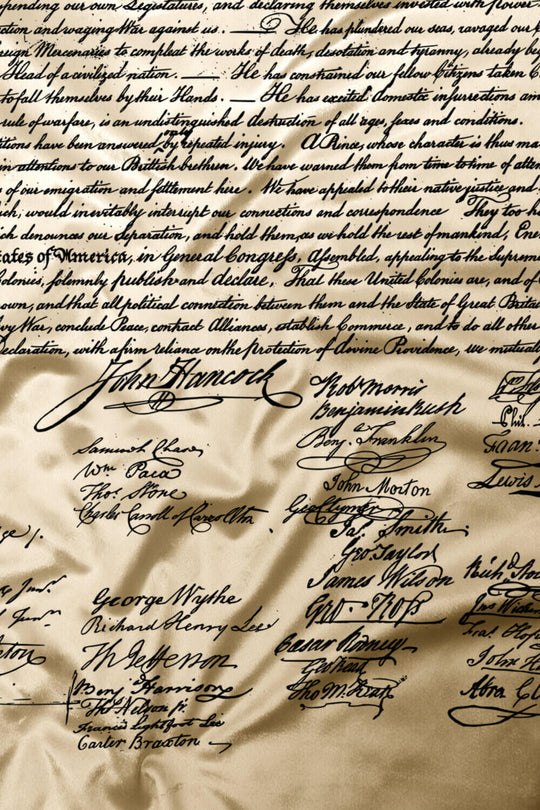 pending our own Legislatures, and declaring themselves invested with power
ction and waging War against us. — He has plundered our seas, ravaged our
reign Mercenaries to compleat the works of death, desolation and tyranny, already be
Head of a civilized nation. — He has constrained our fellow Citizens taken C
to fall themselves by their Hands. — He has excited domestic insurrections am
rule of warfare, is an undistinguished destruction of all ages, sexes and conditions.
only
itions have been answered by repeated injury. A Prince, whose character is thus ma
in attentions to our Brittish brethren. We have warned them from time to time of attem
s of our emigration and settlement here. We have appealed to their native justice and
ich, would inevitably interrupt our connections and correspondence They too ha
ich denounces our Separation, and hold them, as we hold the rest of mankind, Ene
tates of America, in General Congress, Assembled, appealing to the Supreme
Colonies, solemnly publish and declare, That these United Colonies are, and of
rown, and that all political connection between them and the State of Great Britai
evy War, conclude Peace, contract Alliances, establish Commerce, and to do all other
eclaration, with a firm reliance on the Protection of divine Providence, we mutuall
John Hancock
Samuel Chase
Wm Paca
Thos. Stone
Charles Carroll of Carrollton
George Wythe
Richard Henry Lee
Th Jefferson
Benj Harrison
Thos Nelson jr.
Francis Lightfoot Lee
Carter Braxton
Robt Morris
Benjamin Rush
Benj. Franklin
John Morton
Geo Clymer
Jas. Smith
Geo. Taylor
James Wilson
Geo. Ross
Caesar Rodney
Geo Read
Tho M:Kean
Phil.
Fran
Lewis
Richd Sto
Jno Withe
Fras. Hop
John H
Abra Cl